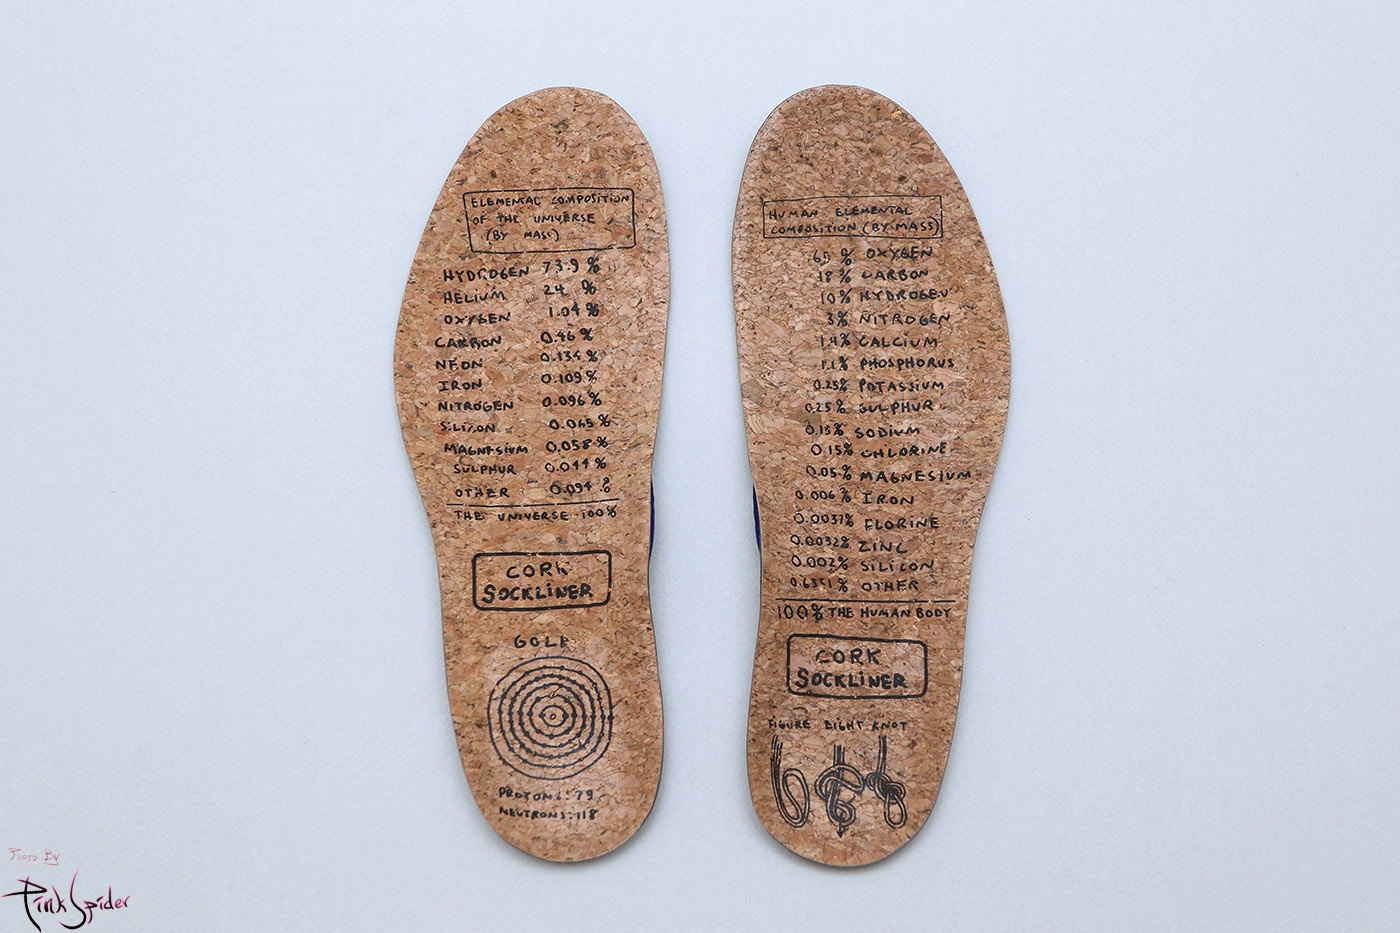 ELEMENTAL COMPOSITION
OF THE UNIVERSE
(BY MASS)
HYDROGEN 73.9 %
HELIUM 24 %
OXYGEN 1.04 %
CARBON 0.46 %
NEON 0.134 %
IRON 0.109 %
NITROGEN 0.096 %
SILICON 0.065 %
MAGNESIUM 0.058 %
SULPHUR 0.044 %
OTHER 0.094 %
THE UNIVERSE 100%
CORK
SOCKLINER
GOLD
PROTONS: 79
NEUTRONS: 118
HUMAN ELEMENTAL
COMPOSITION (BY MASS)
65 % OXYGEN
18 % CARBON
10 % HYDROGEN
3% NITROGEN
1.4% CALCIUM
1.1% PHOSPHORUS
0.25% POTASSIUM
0.25% SULPHUR
0.15% SODIUM
0.15% CHLORINE
0.05% MAGNESIUM
0.006% IRON
0.0037% FLORINE
0.0032% ZINC
0.002% SILICON
0.6351% OTHER
100% THE HUMAN BODY
CORK
SOCKLINER
FIGURE EIGHT KNOT
PHOTO BY
PinkSpider